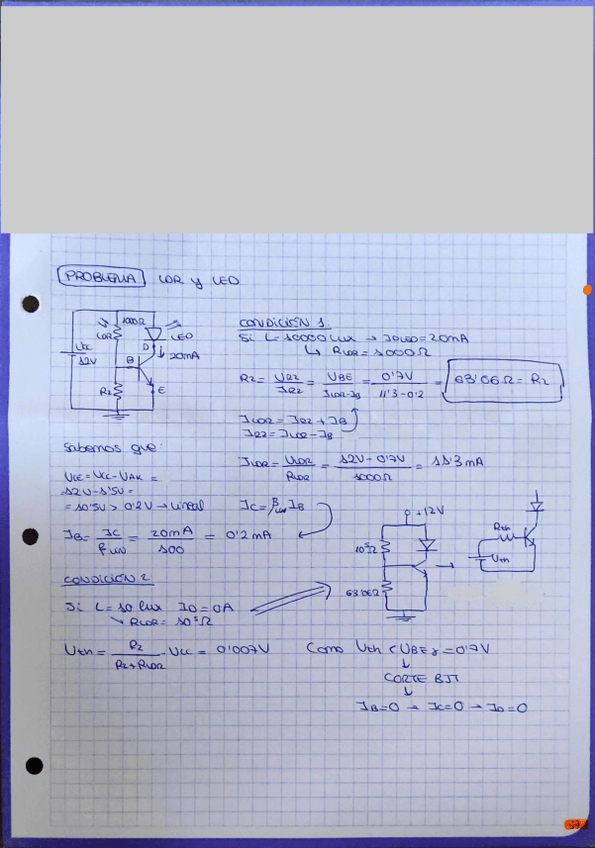 PROBLEMA LDR y LED
1000Ω
LDR
LED
D
Vcc
12V
B
20mA
R2
E
CONDICIÓN 1.
Si L=10000 lux → IDLED=20mA
↳ RLDR=1000Ω
R2 = VR2/IR2 = VBE/(ILDR-IB) = 0'7V/(11'3-0'2) = 63'06Ω = R2
ILDR = IR2 + IB
IR2 = ILDR - IB
Sabemos que:
ILDR = VLDR/RLDR = (12V-0'7V)/1000Ω = 11'3 mA
VCE = VCC - VAK =
12V-1'5V =
= 10'5V > 0'2V → Lineal
IC = βLIN IB
IB = IC/βLIN = 20mA/100 = 0'2 mA
+12V
10⁵Ω
63'06Ω
Rth
Vth
CONDICIÓN 2
Si L=10 lux ID=0A
↘ RLDR=10⁵Ω
Vth = R2/(R2+RLDR) · VCC = 0'007V
Como Vth < VBEγ=0'7V
↓
CORTE BJT
↓
IB=0 → IC=0 → ID=0